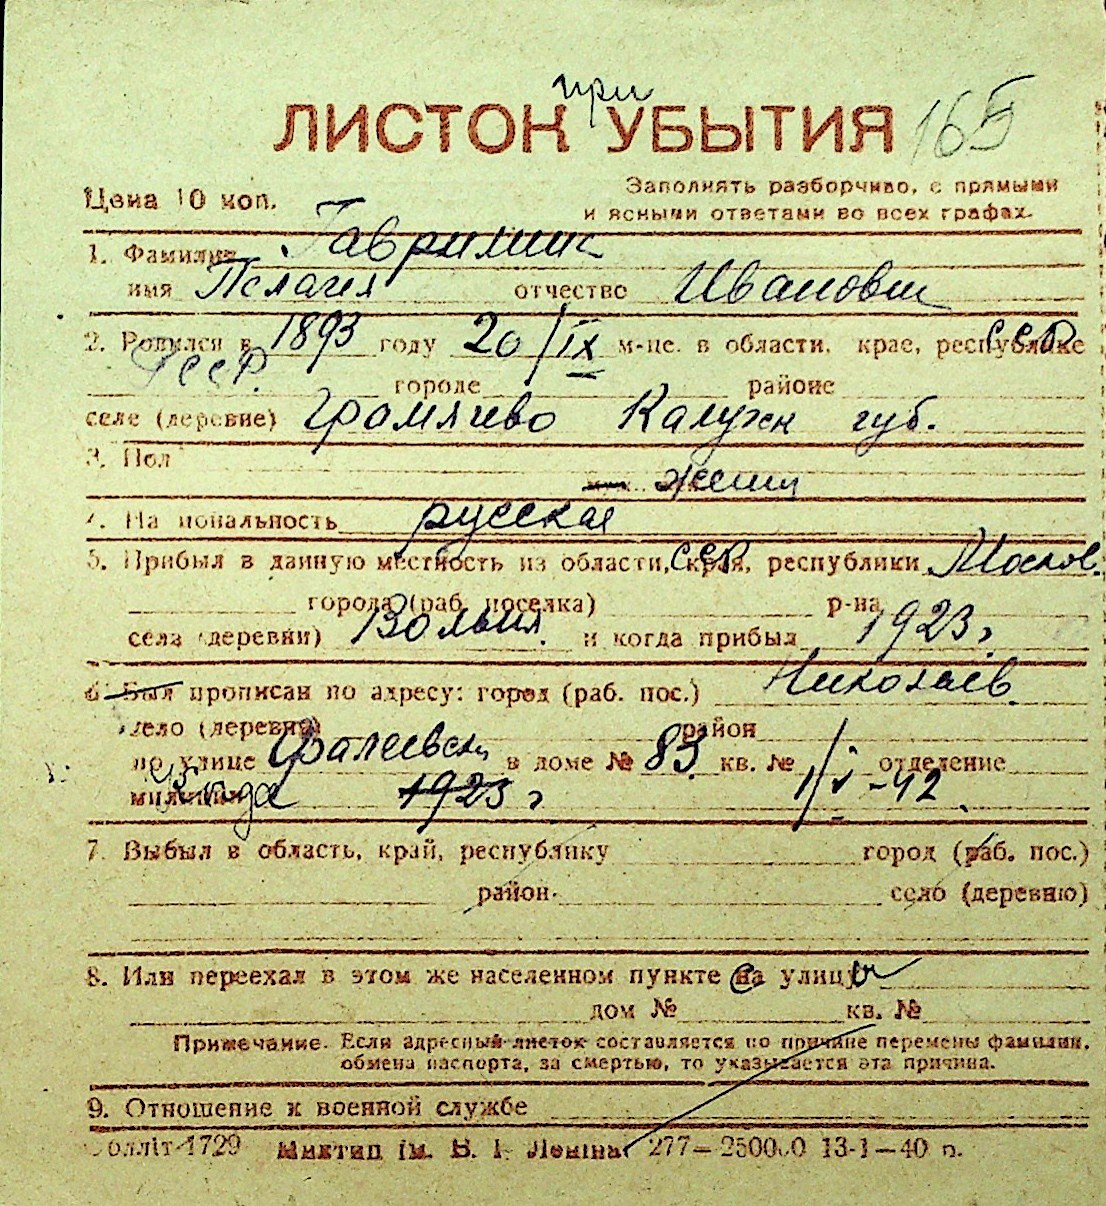 при
ЛИСТОК УБЫТИЯ 165
Цена 10 коп. Заполнять разборчиво, с прямыми
и ясными ответами во всех графах.
1. Фамилия
имя Пелагея отчество Ивановн
2. Родился в 1893 году 20/IX м-це. в области, крае, республике СССР
РСФСР. городе районе
селе (деревне) Громячево Калужн губ.
3. Пол женщ
4. Национальность русская
5. Прибыл в данную местность из области, края, республики СССР Москов.
города (раб. поселка) р-на
села (деревни) и когда прибыл 1923 г
6. Был прописан по адресу: город (раб. пос.) Николаев
село (деревня) район
по улице Фалеевск в доме № 83 кв. № 1 отделение
милиции 1923 г 1/V-42
7. Выбыл в область, край, республику город (раб. пос.)
район село (деревню)
8. Или переехал в этом же населенном пункте на улицу
дом № кв. №
Примечание. Если адресный листок составляется по причине перемены фамилии,
обмена паспорта, за смертью, то указывается эта причина.
9. Отношение к военной службе
1729 Миктип ім. В. І. Леніна 277—250000 13-1—40 р.